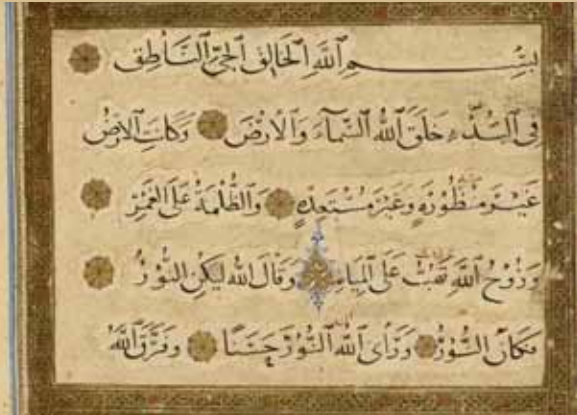 بِسْمِ ٱللَّهِ ٱلْخَالِقِ ٱلْحَيِّ ٱلنَّاطِقِ
فِي ٱلْبَدْءِ خَلَقَ ٱللَّهُ ٱلسَّمَآءَ وَٱلْأَرْضَ وَكَانَتِ ٱلْأَرْضُ
غَيْرَ مَنْظُورَةٍ وَغَيْرَ مُسْتَعِدَّةٍ وَٱلظُّلْمَةُ عَلَى ٱلْغَمْرِ
وَرُوحُ ٱللَّهِ تَهُبُّ عَلَى ٱلْمِيَاهِ وَقَالَ ٱللَّهُ لِيَكُنِ ٱلنُّورُ
فَكَانَ ٱلنُّورُ وَرَأَى ٱللَّهُ ٱلنُّورَ حَسَنًا وَفَرَّقَ ٱللَّهُ